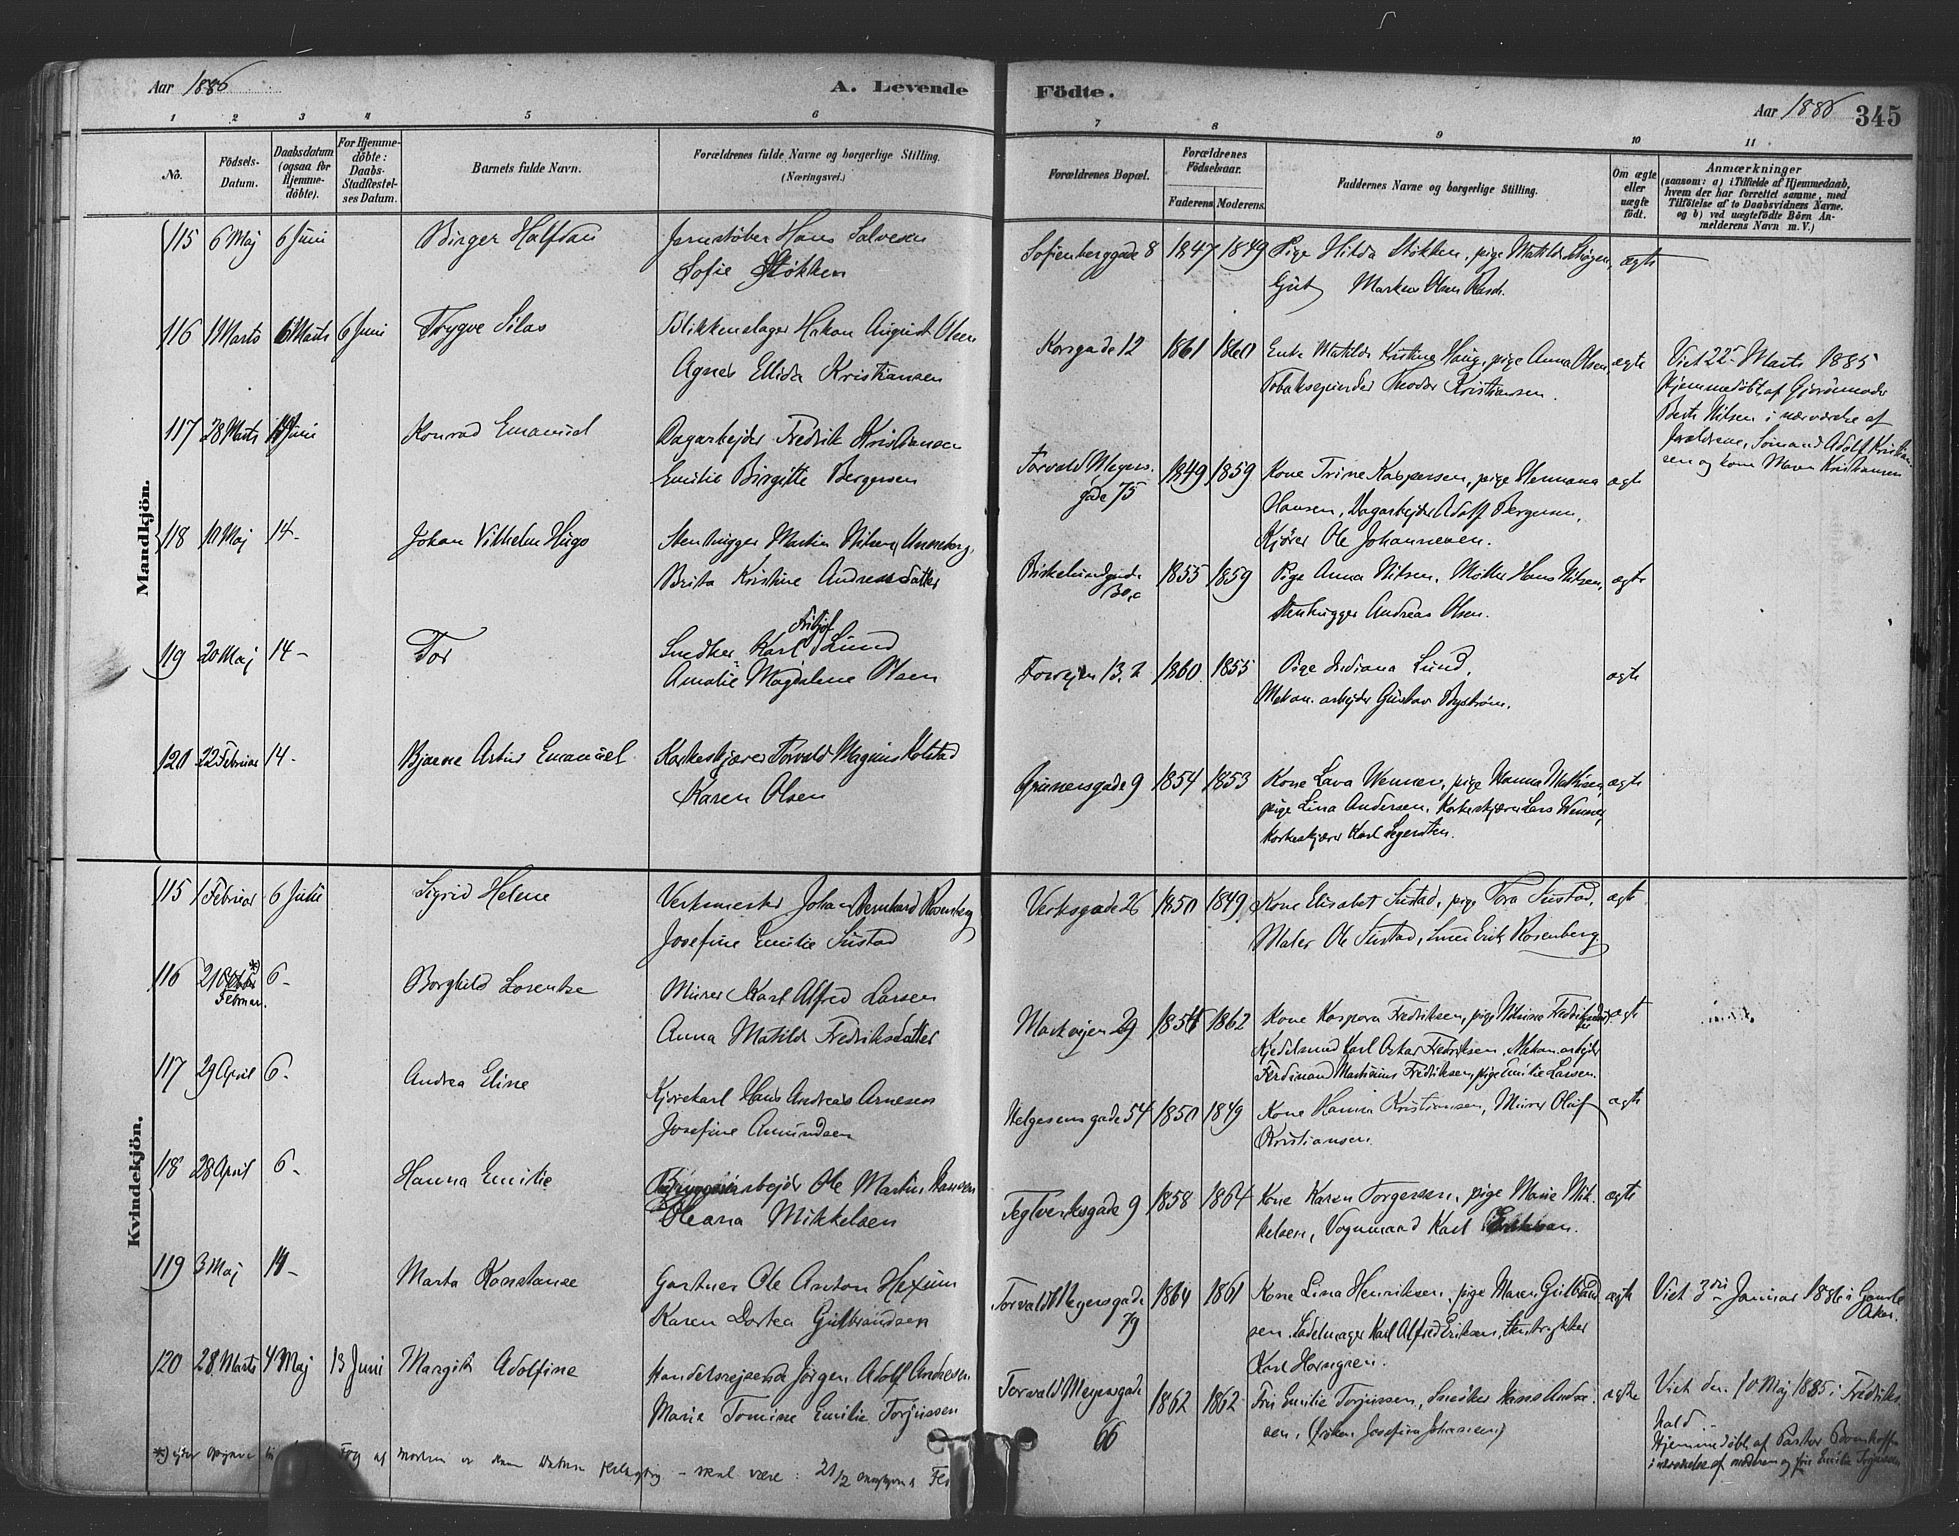 Aar 1886
A. Levende
Födte.
Aar 1886
345
1 2 3 4 5 6 7 8 9 10 11
No.
Födsels-
Datum.
Daabsdatum
(ogsaa for
Hjemme-
döbte).
For Hjemme-
döbte:
Daabs-
Stadfestel-
ses Datum.
Barnets fulde Navn.
Forældrenes fulde Navne og borgerlige Stilling.
(Næringsvei.)
Forældrenes Bopæl.
Forældrenes
Födselsaar.
Faderens Moderens.
Faddernes Navne og borgerlige Stilling.
Om ægte
eller
uægte
födt.
Anmærkninger
(saasom: a) i Tilfælde af Hjemmedaab,
hvem der har forrettet samme, med
Tilföielse af to Daabsvidners Navne.
og b) ved uægtefödte Börn An-
melderens Navn m. V.)
Mandkjön.
115 6 Maj 6 Juni Birger Halfdan Jernstøber Hans Salvesen
Sofie Støkken
Sofienberggade 8 1847 1849 Pige Hilda Støkken, pige Matilde ægte
Gut Markus Olsen
116 1 Marts 6 Marts 6 Juni Trygve Silas Blikkenslager Hakon August Olsen
Agnes Ellida Kristiansen
Korsgade 12 1861 1860 Enke Matilde Kristine Haug, pige Anna Olsen, ægte
Tobaksspinder Teodor Kristiansen.
Viet 22 Marts 1885
Hjemmedøbt af Gjordemoder
Berte Nilsen i nærværelse af
forældrene, Sømand Adolf Kristian-
sen og kone Maren Kristiansen
117 28 Marts Juni Konrad Emanuel Dagarbejder Fredrik Kristiansen
Emilie Birgitte Bergersen
Torvald Meyers-
gade 75 1849 1859 Kone Trine Kaspersen, pige Hermana ægte
Hansen, Dagarbejder Adolf Bergersen,
Kjører Ole Johannesen.
118 10 Maj 14- Johan Vilhelm Hugo Stenhugger Martin Nilsen
Brita Kristine Andreasdatter
Birkelundgade 1855 1859 Pige Anna Nilsen, Møller Hans Nilsen, ægte
Stenhugger Andreas Olsen.
119 20 Maj 14- Tor Snedker Karl Fritjof Lund
Amalie Magdalene Olsen
13, 2 1860 1855 Pige Indiana Lund, ægte
Mekan. arbejder Gustav Bystrøm.
120 22 Februar 14- Bjarne Artur Emanuel Korkeskjærer Torvald Magnus Kolstad
Karen Olsen
Grünersgade 9 1854 1853 Kone Lava Wenner, pige Hanna Mathisen, ægte
pige Lina Andersen, Korkeskjærer Lars Wenner,
Korkeskjærer Karl
Kvindekjön.
115 1 Februar 6 Juni Sigrid Helene Verkmester Johan Bernhard Rosenberg
Josefine Emilie Sustad
Verksgade 26 1850 1849 Kone Elisabet Sustad, pige Tora Sustad, ægte
Maler Ole Sustad, Erik Rosenberg
116 21 *)
Februar. 6- Borghild Lorentze Murer Karl Alfred Larsen
Anna Matilde Fredriksdatter
Markvejen 29 1854 1862 Kone Kaspara Fredriksen, pige ægte
Kjedelsmed Karl Oskar Fredriksen, Mekan. arbejder
Ferdinand Martinius Fredriksen, pige Emilie Larsen.
117 29 April 6- Andrea Eline Kjørekarl Hans Andreas Arnesen
Josefine Amundsen
Helgesensgade 54 1850 1849 Kone Hanna Kristiansen, Murer Oluf ægte
Kristiansen.
118 28 April 6- Hanna Emilie Bryggeriarbejder Ole Martin Hansen
Oleana Mikkelsen
Teglverksgade 9 1858 1864 Kone Karen Torgersen, pige Marie Mik- ægte
kelsen, Vognmand Karl
119 3 Maj 14- Marta Konstanse Gartner Ole Anton Hexum
Karen Dortea Gulbrandsen
Torvald Meyersgade
79 1864 1861 Kone Lina Henriksen, pige Maren Gulbrand- ægte
sen, Sadelmager Karl Alfred Eriksen, Stentrykker
Karl Horngren.
Viet 3die Januar 1886 i Gamle
Aker.
120 28 Marts 4 Maj 13 Juni Margit Adolfine Handelsrejsende Jørgen Adolf Andresen
Marie Tomine Emilie Torjussen
Torvald Meyersgade
66 1862 1862 Frk Emilie Torjussen, Snedker Hans Andre- ægte
sen, (frøken Josefine Johansen)
Viet den 10 Maj 1885 i Fredriks-
hald.
Hjemmedøbt af Pastor
i nærværelse af moderen og frk Emilie Torjussen
*) efter opgivende af moder er denne Datum - skal være: 21/2